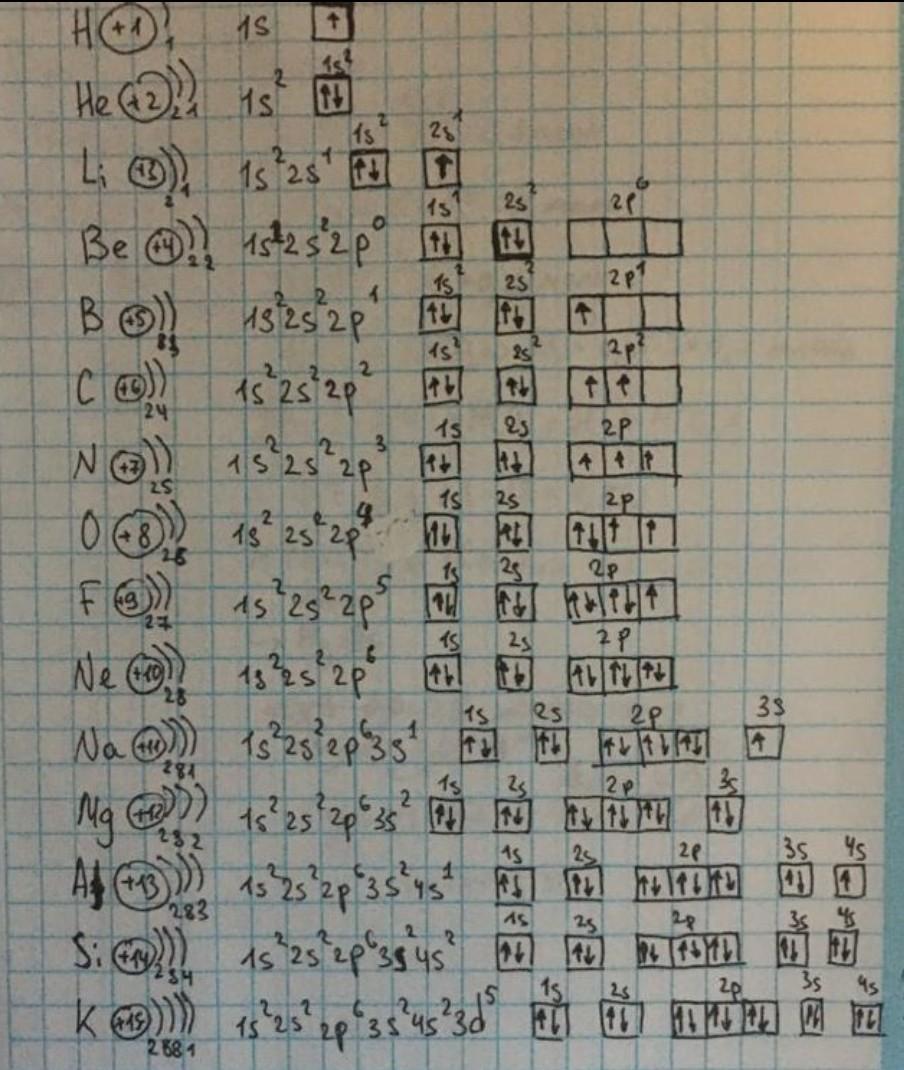 H +1 1 1s ↑
1s²
He +2 21 1s² ↑↓
1s² 2s¹
Li +3 21 1s²2s¹ ↑↓ ↑
1s¹ 2s² 2p⁶
Be +4 22 2s²2p⁰ ↑↓ ↑↓
1s² 2s² 2p¹
B +5 1s²2s²2p¹ ↑↓ ↑↓ ↑
1s² 2s² 2p²
C +6 24 1s²2s²2p² ↑↓ ↑↓ ↑ ↑
1s 2s 2p
N +7 25 1s²2s²2p³ ↑↓ ↑↓ ↑ ↑ ↑
1s 2s 2p
O +8 26 1s²2s²2p⁴ ↑↓ ↑↓ ↑↓ ↑ ↑
1s 2s 2p
F +9 27 1s²2s²2p⁵ ↑↓ ↑↓ ↑↓ ↑↓ ↑
1s 2s 2p
Ne +10 28 1s²2s²2p⁶ ↑↓ ↑↓ ↑↓ ↑↓ ↑↓
1s 2s 2p 3s
Na +11 281 1s²2s²2p⁶3s¹ ↑↓ ↑↓ ↑↓ ↑↓ ↑↓ ↑
1s 2s 2p 3s
Mg +12 282 1s²2s²2p⁶3s² ↑↓ ↑↓ ↑↓ ↑↓ ↑↓ ↑↓
1s 2s 2p 3s 4s
Al +13 283 1s²2s²2p⁶3s²4s¹ ↑↓ ↑↓ ↑↓ ↑↓ ↑↓ ↑↓ ↑
1s 2s 2p 3s 4s
Si +14 284 1s²2s²2p⁶3s²4s² ↑↓ ↑↓ ↑↓ ↑↓ ↑↓ ↑↓ ↑↓
1s 2s 2p 3s 4s
K +15 2881 1s²2s²2p⁶3s²4s²3d⁵ ↑↓ ↑↓ ↑↓ ↑↓ ↑↓ ↑↓ ↑↓